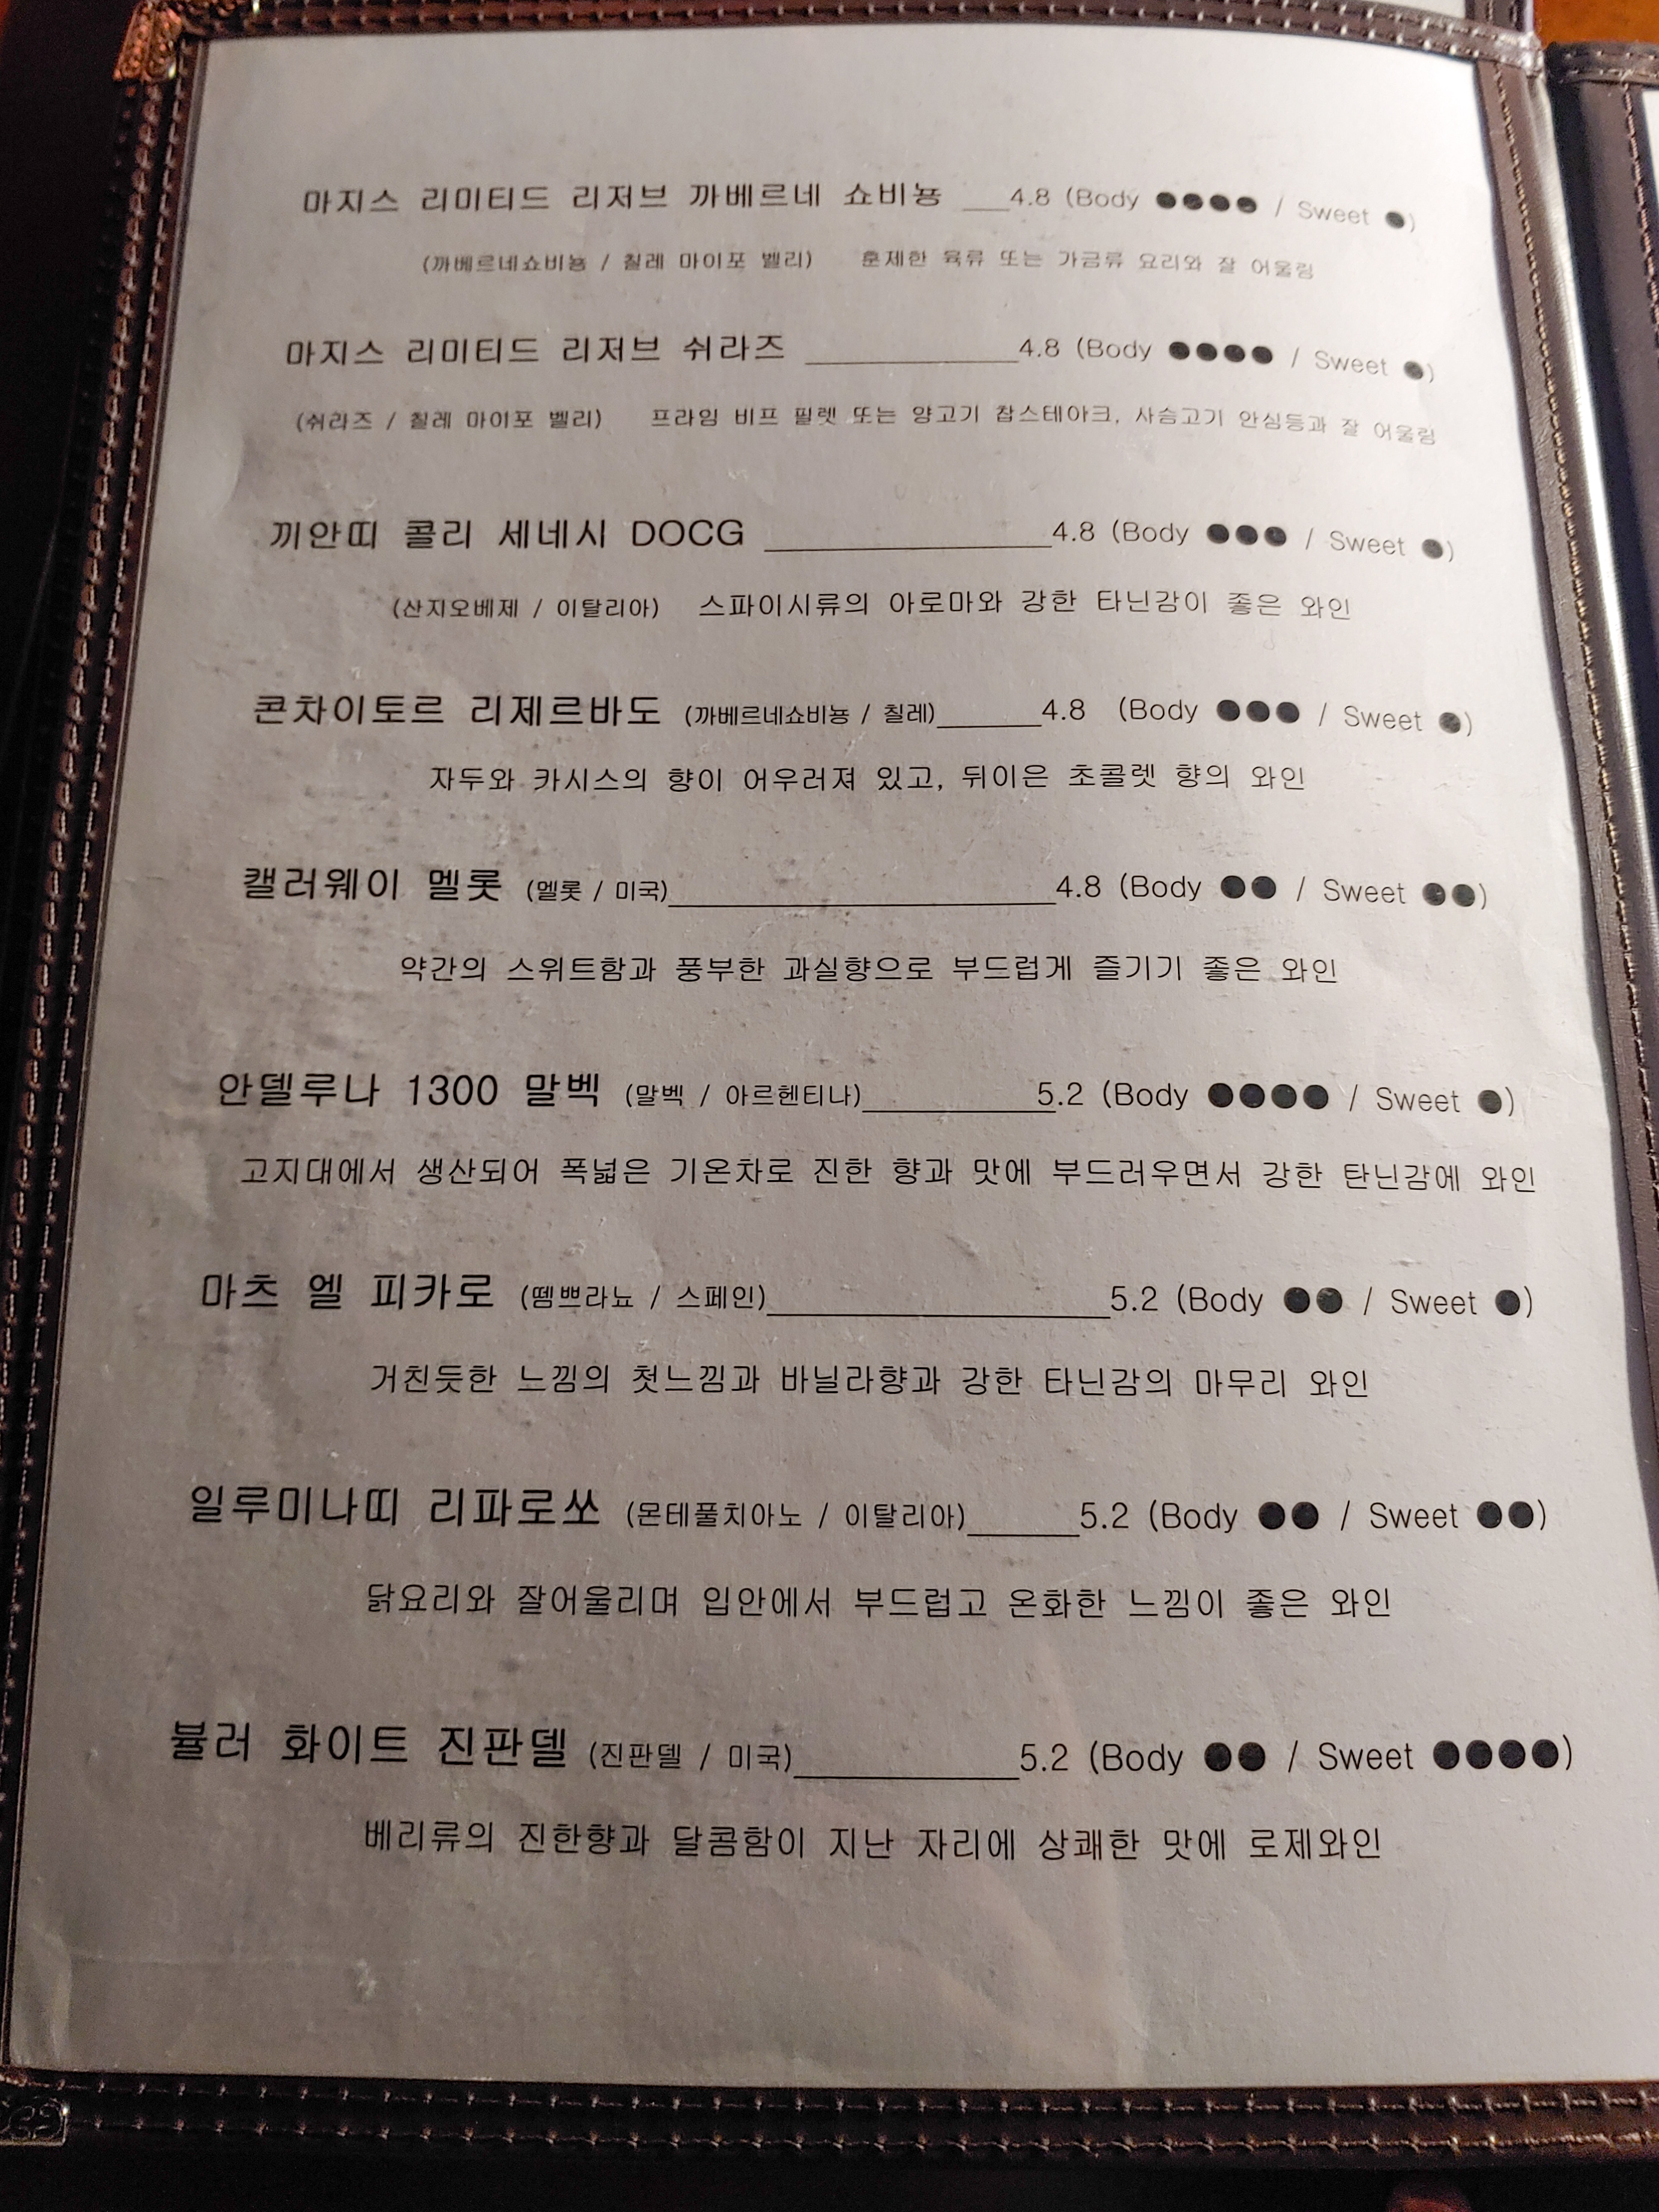 마지스 리미티드 리저브 까베르네 쇼비뇽 ___4.8 (Body ●●●● / Sweet ●)
(까베르네쇼비뇽 / 칠레 마이포 벨리) 훈제한 육류 또는 가금류 요리와 잘 어울림
마지스 리미티드 리저브 쉬라즈 ______________4.8 (Body ●●●● / Sweet ●)
(쉬라즈 / 칠레 마이포 벨리) 프라임 비프 필렛 또는 양고기 찹스테아크, 사슴고기 안심등과 잘 어울림
끼안띠 콜리 세네시 DOCG __________________4.8 (Body ●●● / Sweet ●)
(산지오베제 / 이탈리아) 스파이시류의 아로마와 강한 타닌감이 좋은 와인
콘차이토르 리제르바도 (까베르네쇼비뇽 / 칠레)______4.8 (Body ●●● / Sweet ●)
자두와 카시스의 향이 어우러져 있고, 뒤이은 초콜렛 향의 와인
캘러웨이 멜롯 (멜롯 / 미국)______________________4.8 (Body ●● / Sweet ●●)
약간의 스위트함과 풍부한 과실향으로 부드럽게 즐기기 좋은 와인
안델루나 1300 말벡 (말벡 / 아르헨티나)___________5.2 (Body ●●●● / Sweet ●)
고지대에서 생산되어 폭넓은 기온차로 진한 향과 맛에 부드러우면서 강한 탄닌감에 와인
마츠 엘 피카로 (뗌쁘라뇨 / 스페인)___________________5.2 (Body ●● / Sweet ●)
거친듯한 느낌의 첫느낌과 바닐라향과 강한 타닌감의 마무리 와인
일루미나띠 리파로쏘 (몬테풀치아노 / 이탈리아)_______5.2 (Body ●● / Sweet ●●)
닭요리와 잘어울리며 입안에서 부드럽고 온화한 느낌이 좋은 와인
뷸러 화이트 진판델 (진판델 / 미국)____________5.2 (Body ●● / Sweet ●●●●)
베리류의 진한향과 달콤함이 지난 자리에 상쾌한 맛에 로제와인